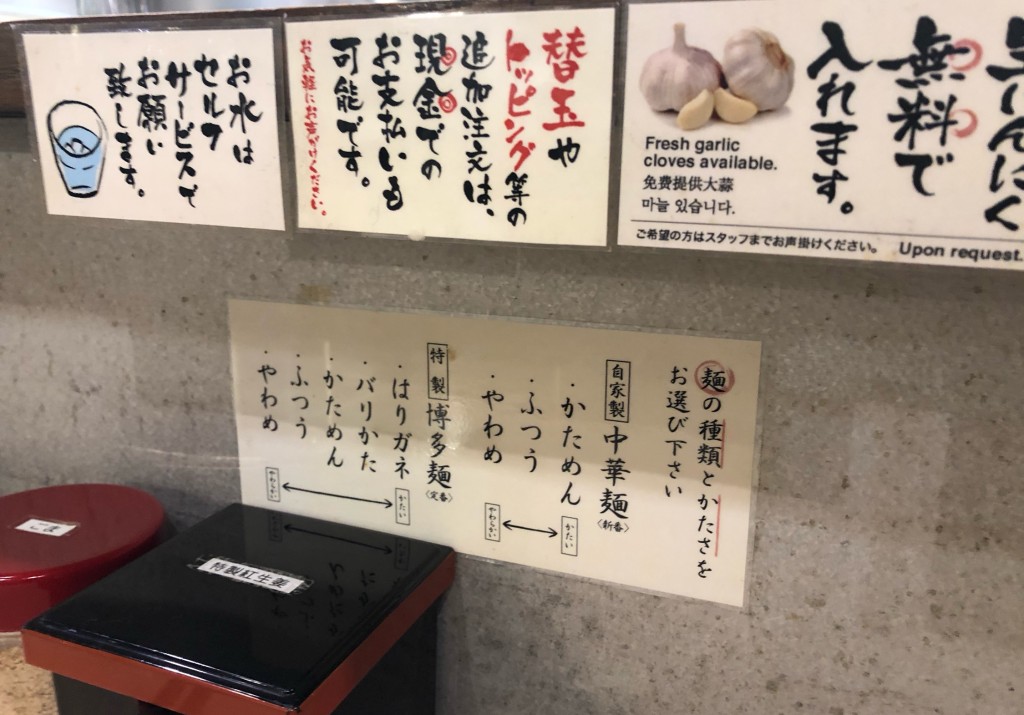 お水は
セルフ
サービスで
お願い
致します。
替玉や
トッピング等の
追加注文は、
現金での
お支払いも
可能です。
お気軽にお声がけください。
生にんにく
無料で
入れます。
Fresh garlic
cloves available.
免费提供大蒜
마늘 있습니다.
ご希望の方はスタッフまでお声掛けください。 Upon request.
麺の種類とかたさを
お選び下さい
自家製 中華麺〈新番〉
・かためん
・ふつう
・やわめ
かたい
やわらかい
特製 博多麺〈定番〉
・はりガネ
・バリかた
・かためん
・ふつう
・やわめ
かたい
やわらかい
ごま
特製紅生姜